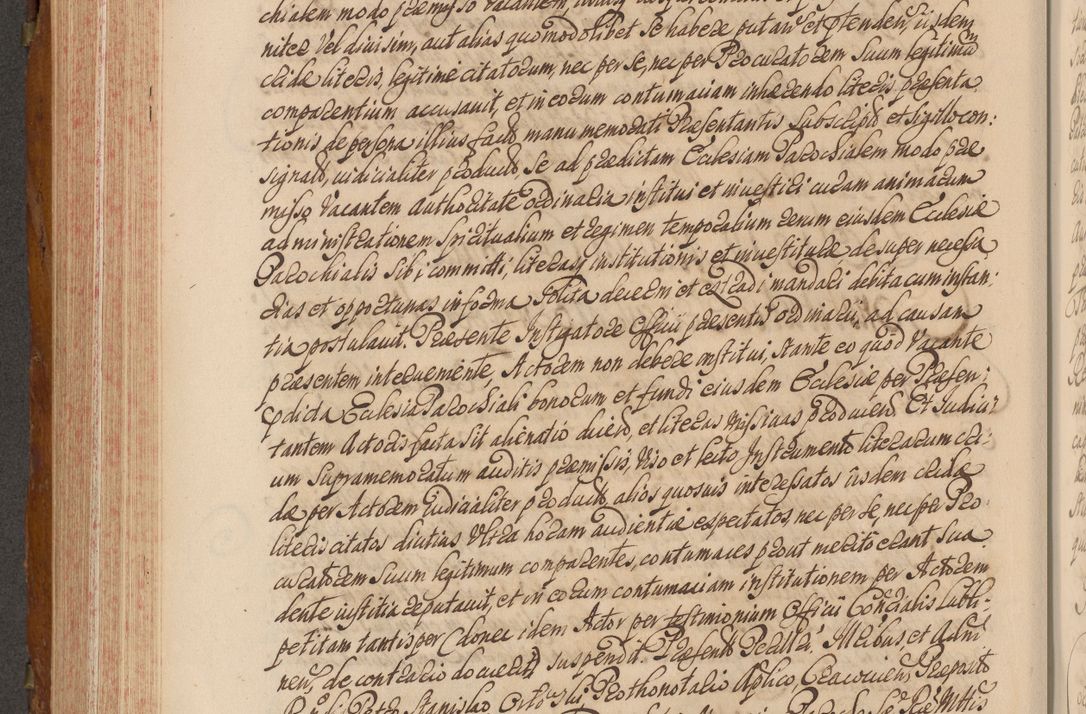 chialem modo præmisso vacantem
nitèr vel divisim, aut alias quomodolibet se habere putan: et ptenden: iisdem
cridæ literis, legitimè citatorum, nec per se, nec per Procuratorem suum legitimũ
comparentium accusavit, et in eorum contumaciam inhærendo literis præsenta
tionis de persona illius facto manu memorati Præsentantis subscripto et sigillo con:
signato, iudicialiter producto, se ad prædictam Ecclesiam Parochialem modo præ
misso vacantem Authoritate Ordinaria institui et investiri curam animarum
administrationem Spiritualium et regimen temporalium rerum eiusdem Ecclesiæ
Parochialis sibi committi, literasq; institutionis et investituræ desuper necessa
rias et opportunas in forma solita decerni et extradi mandari debita cum instan:
tia postulavit. Præsente Instigatore Officii præsentis ordinarii, ad causam
præsentem interveniente, Actorem non debere institui, stante eo quod vacante
pdicta Ecclesia Parochiali bonorum et fundi eiusdem Ecclesiæ per Præsen:
tantem Actoris facta sit alienatio et literas missivas Et Judici:
um supramemoratum auditis præmissis, viso et lecto Instrumento literarum cri:
dæ per Actorem Judicialiter producto, alios quosvis interessatos iisdem cridæ
literis citatos diutius ultra horam audientiæ expectatos, nec per se, nec per Pro
curatorem suum legitimum comparentes, contumaces prout merito erant sua:
dente iustitia reputavit, et in eorum contumaciam institutionem per Actorem
petitam tantisper donec idem Actor per testimonium Officii Consrialis Lubli:
nen: de contrario docuerit suspendit. Præsent: Illribus, et Admį
Petro, Stanislao Prothonotario Aplico, Cracovien: Præposit